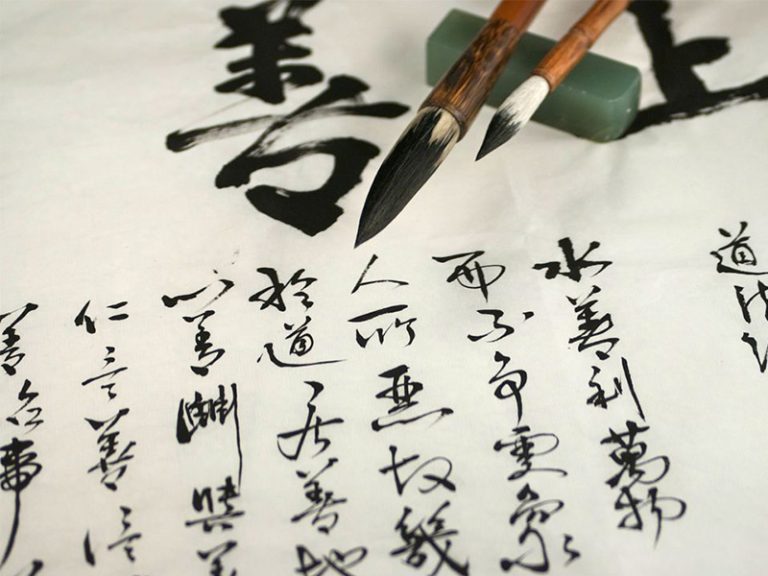 上善
道法
水善利萬物
而不争處衆
人所惡故幾
於道居善地
心善淵與善
仁言善信
善治事